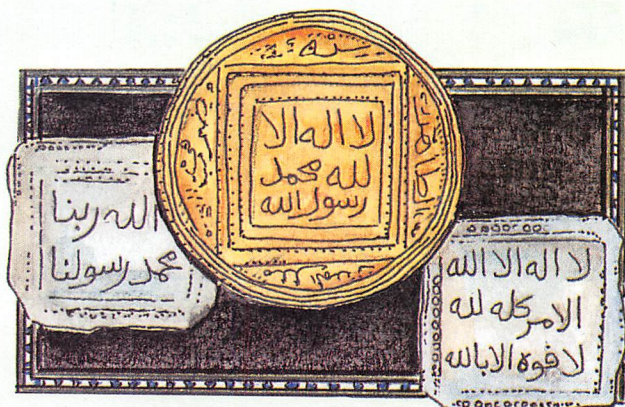 سنه
لا اله الا
لله محمد
رسول الله
الله ربنا
محمد رسولنا
لا اله الا الله
الامر كله لله
لا قوة الا بالله